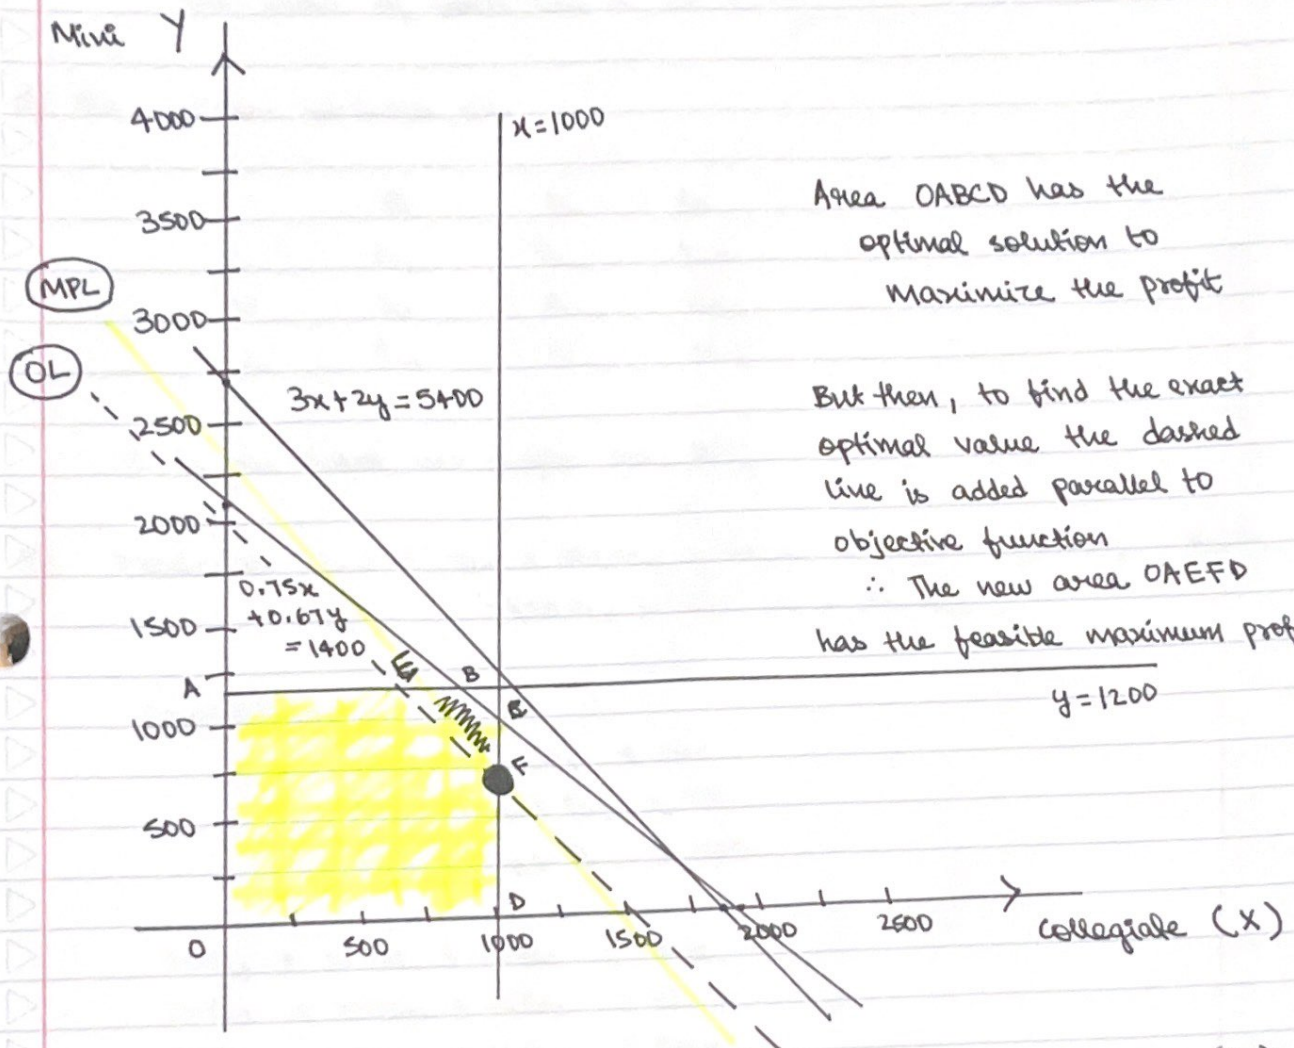 Mini Y
4000
x=1000
3500
MPL
3000
OL
3x+2y=5400
2500
2000
0.75x
+0.67y
=1400
1500
A
E
B
y=1200
1000
F
500
D
0
500
1000
1500
2000
2500
Collegiate (X)
Area OABCD has the
optimal solution to
Maximize the profit
But then, to find the exact
optimal value the dashed
line is added parallel to
objective function
∴ The new area OAEFD
has the feasible maximum prof